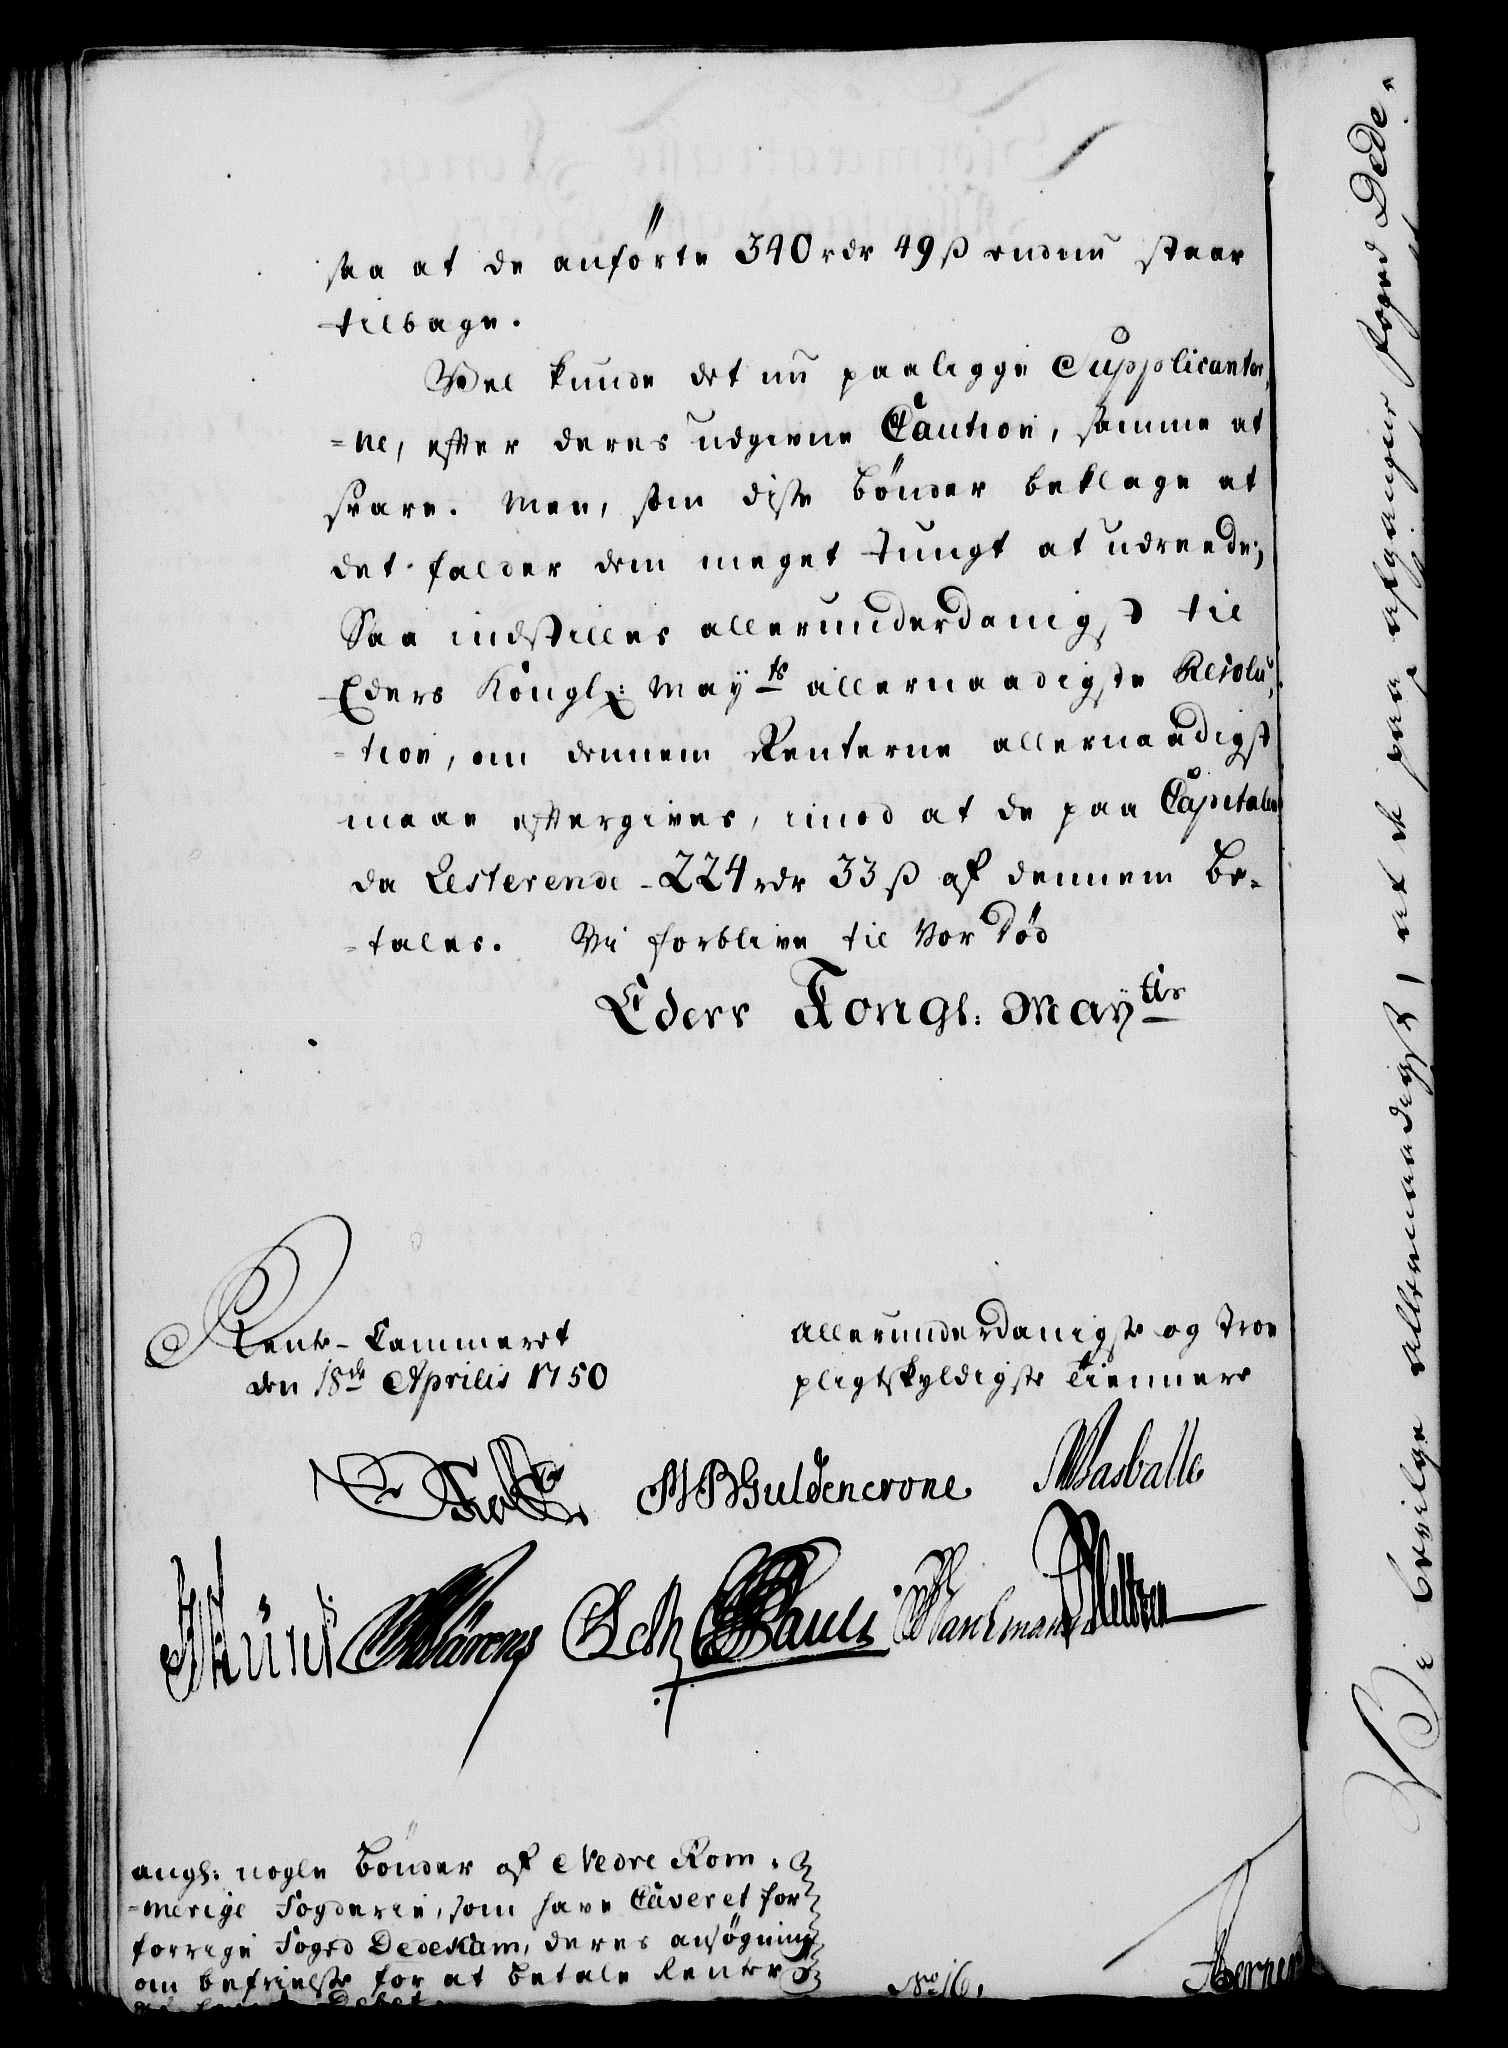 saa at de anførte 340 rdr 49 ß endnu staar
tilbage.
Vel kunde det nu paaligge Supplicanter,
=ne, efter deres udgivne Caution, samme at
svare. Men, som disse Bønder beklage at
det falder dem meget tungt at udreede;
Saa indstilles allerunderdanigst til
Eders Kongl: Mayts allernaadigste Resolu,
=tion, om dennem Renterne allernaadigst
maae eftergives, imod at de paa Capitalen
da Resterende 224 rdr 33 ß af dennem be-
=tales. Vi forblive til Vor Død
Eders Kongl: Maytts
Rente-Cammeret
den 18de Aprilis 1750
allerunderdanigste og troe
pligtskyldigste Tiennere
Guldencrone
Rasballe
Pauli
angl: nogle Bønder af Nedre Rom,
=merige Fogderie, som have Caveret for
forrige Foged Dedekam, deres ansøgning
om befrielse for at betale Renter
Debet
No 16.
Vi bevilge allernaadigst, at de paa afgangne Foged Dede-